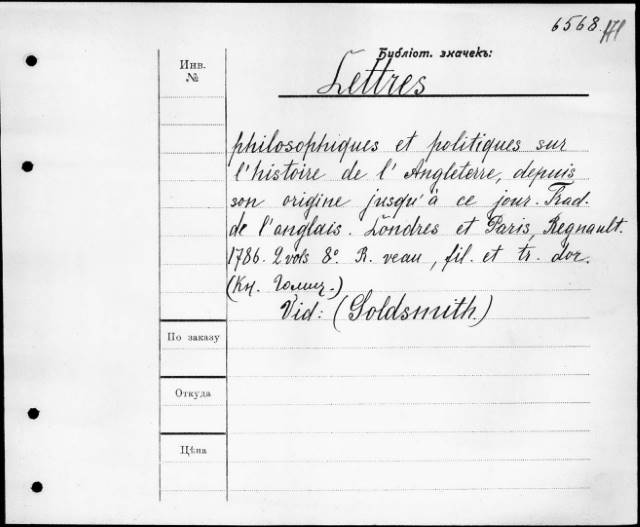 6568.
Библіот. значекъ:
Инв.
№
Lettres
philosophiques et politiques sur
l'histoire de l'Angleterre, depuis
son origine jusqu'à ce jour. Trad.
de l'anglais. Londres et Paris, Regnault.
1786. 2 vols 8°. R. veau, fil. et tr. dor.
(Кн. Голиц.)
Vid: (Goldsmith)
По заказу
Откуда
Цѣна